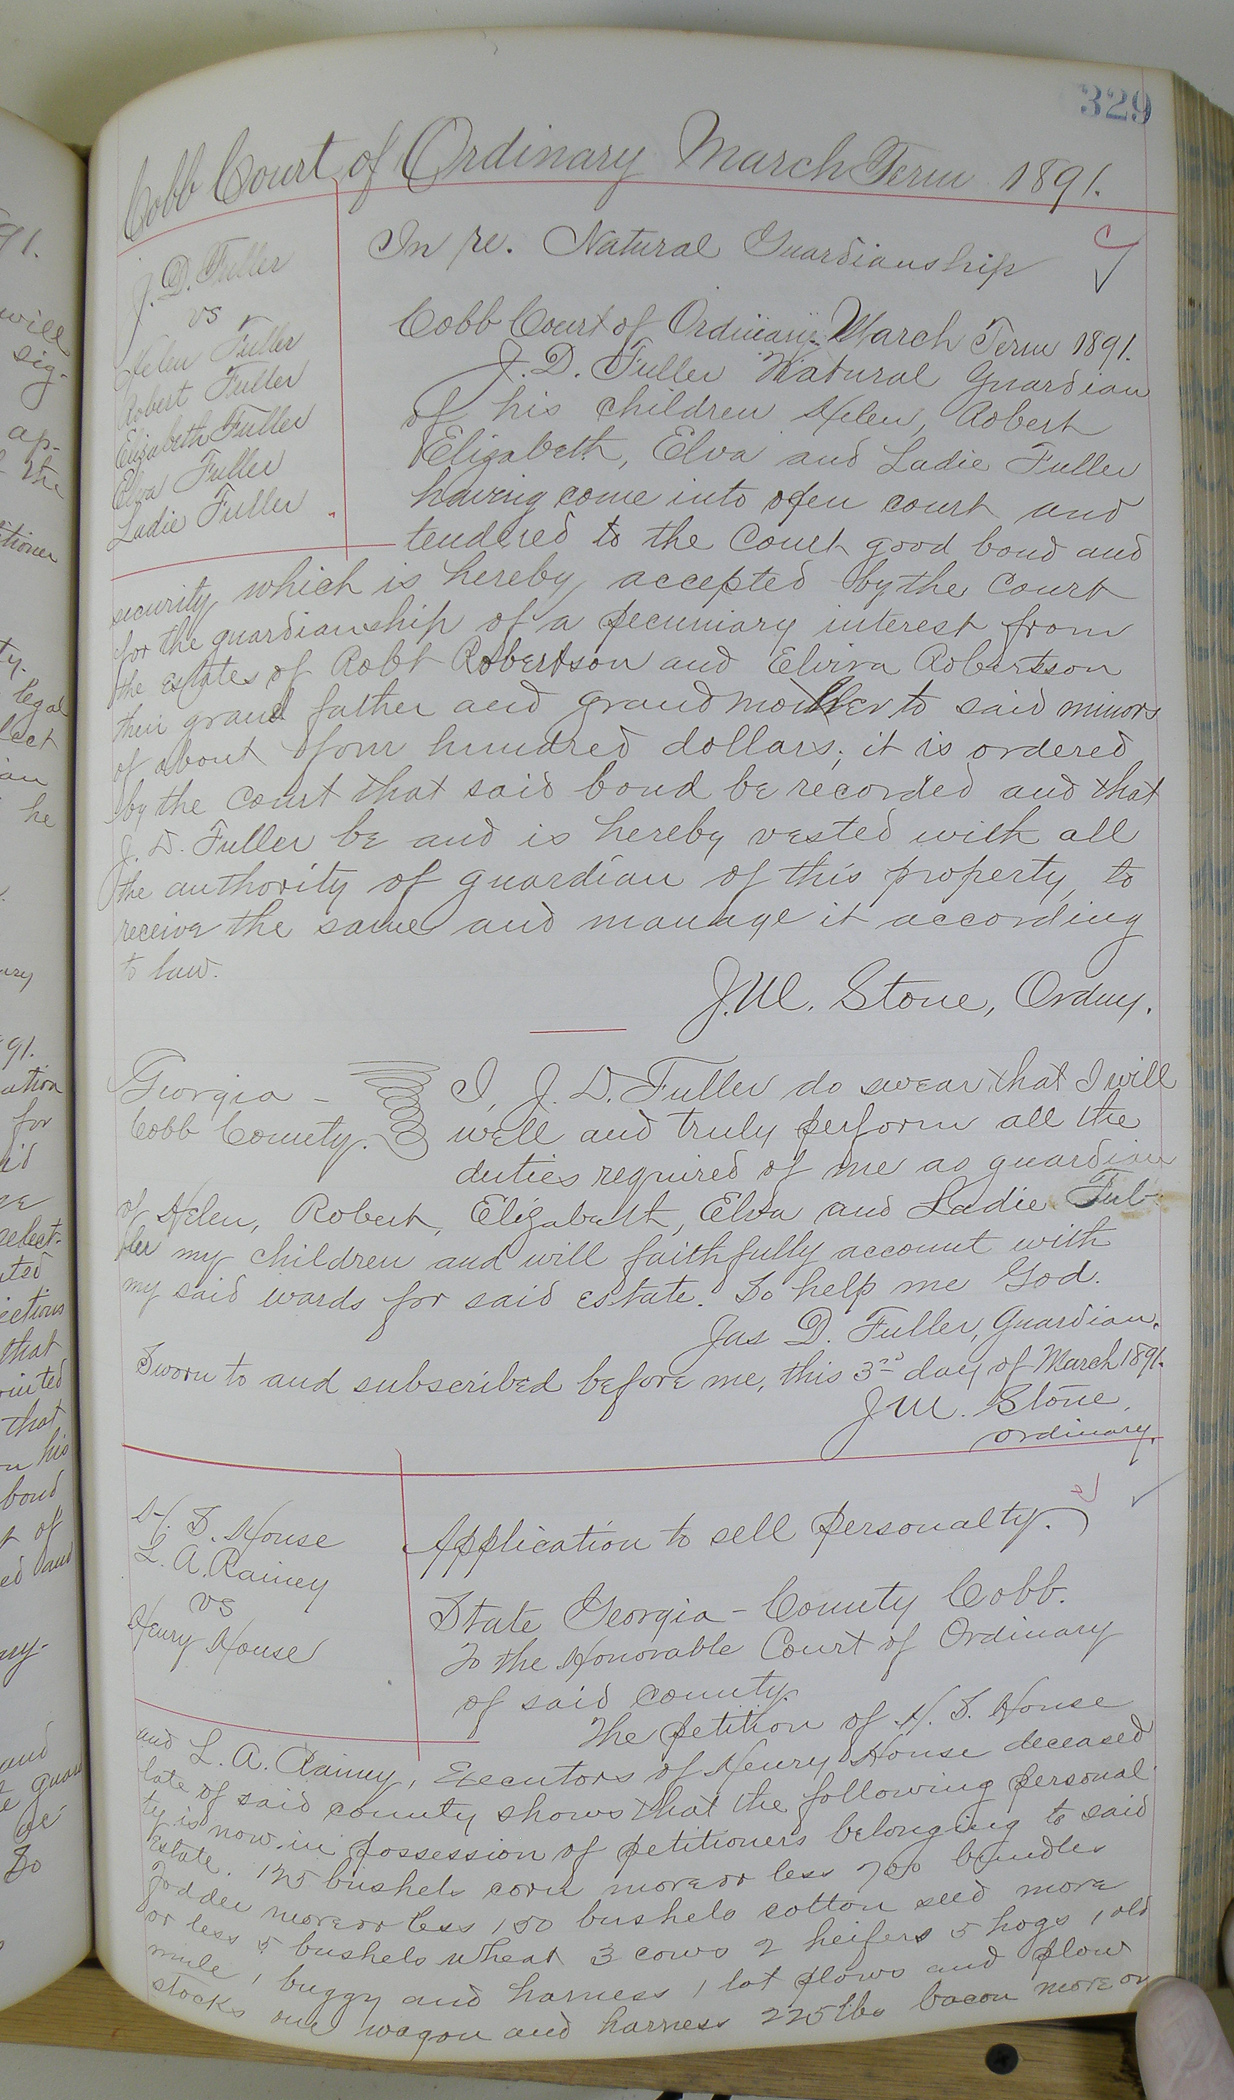 329
Cobb Court of Ordinary March Term 1891.
J. D. Fuller
vs
Helen Fuller
Robert Fuller
Elizabeth Fuller
Elva Fuller
Ladie Fuller
In re. Natural Guardianship
Cobb Court of Ordinary March Term 1891.
J. D. Fuller Natural Guardian
of his children Helen, Robert
Elizabeth, Elva and Ladie Fuller
having come into open court and
tendered to the Court good bond and
security which is hereby accepted by the Court
for the guardianship of a pecuniary interest from
the estates of Robt Robertson and Elvira Robertson
their grand father and grandmother to said minors
of about four hundred dollars; it is ordered
by the Court that said bond be recorded and that
J. D. Fuller be and is hereby vested with all
the authority of guardian of this property, to
receive the same and manage it according
to law.
J. M. Stone, Ordny.
Georgia -
Cobb County.
I, J. D. Fuller do swear that I will
well and truly perform all the
duties required of me as guardian
of Helen, Robert, Elizabeth, Elva and Ladie Ful-
ler my children and will faithfully account with
my said wards for said estate. So help me God.
Jas D. Fuller, Guardian.
Sworn to and subscribed before me, this 3rd day of March 1891.
J. M. Stone,
Ordinary.
H. S. House
L. A. Rainey
vs
Henry House
Application to sell personalty.
State Georgia - County Cobb.
To the Honorable Court of Ordinary
of said county.
The petition of H. S. House
and L. A. Rainey, Executors of Henry House deceased
late of said county shows that the following personal
ty is now in possession of petitioners belonging to said
Estate. 125 bushels corn more or less 700 bundles
fodder more or less 150 bushels cotton seed more
or less 5 bushels wheat 3 cows 2 heifers 5 hogs 1 old
mule 1 buggy and harness 1 lot plows and plow
stocks one wagon and harness 225 lbs bacon more or
91.
will
sig-
ap-
the
legal
he
91.
for
select-
that
that
his
bond
of
and
and
So